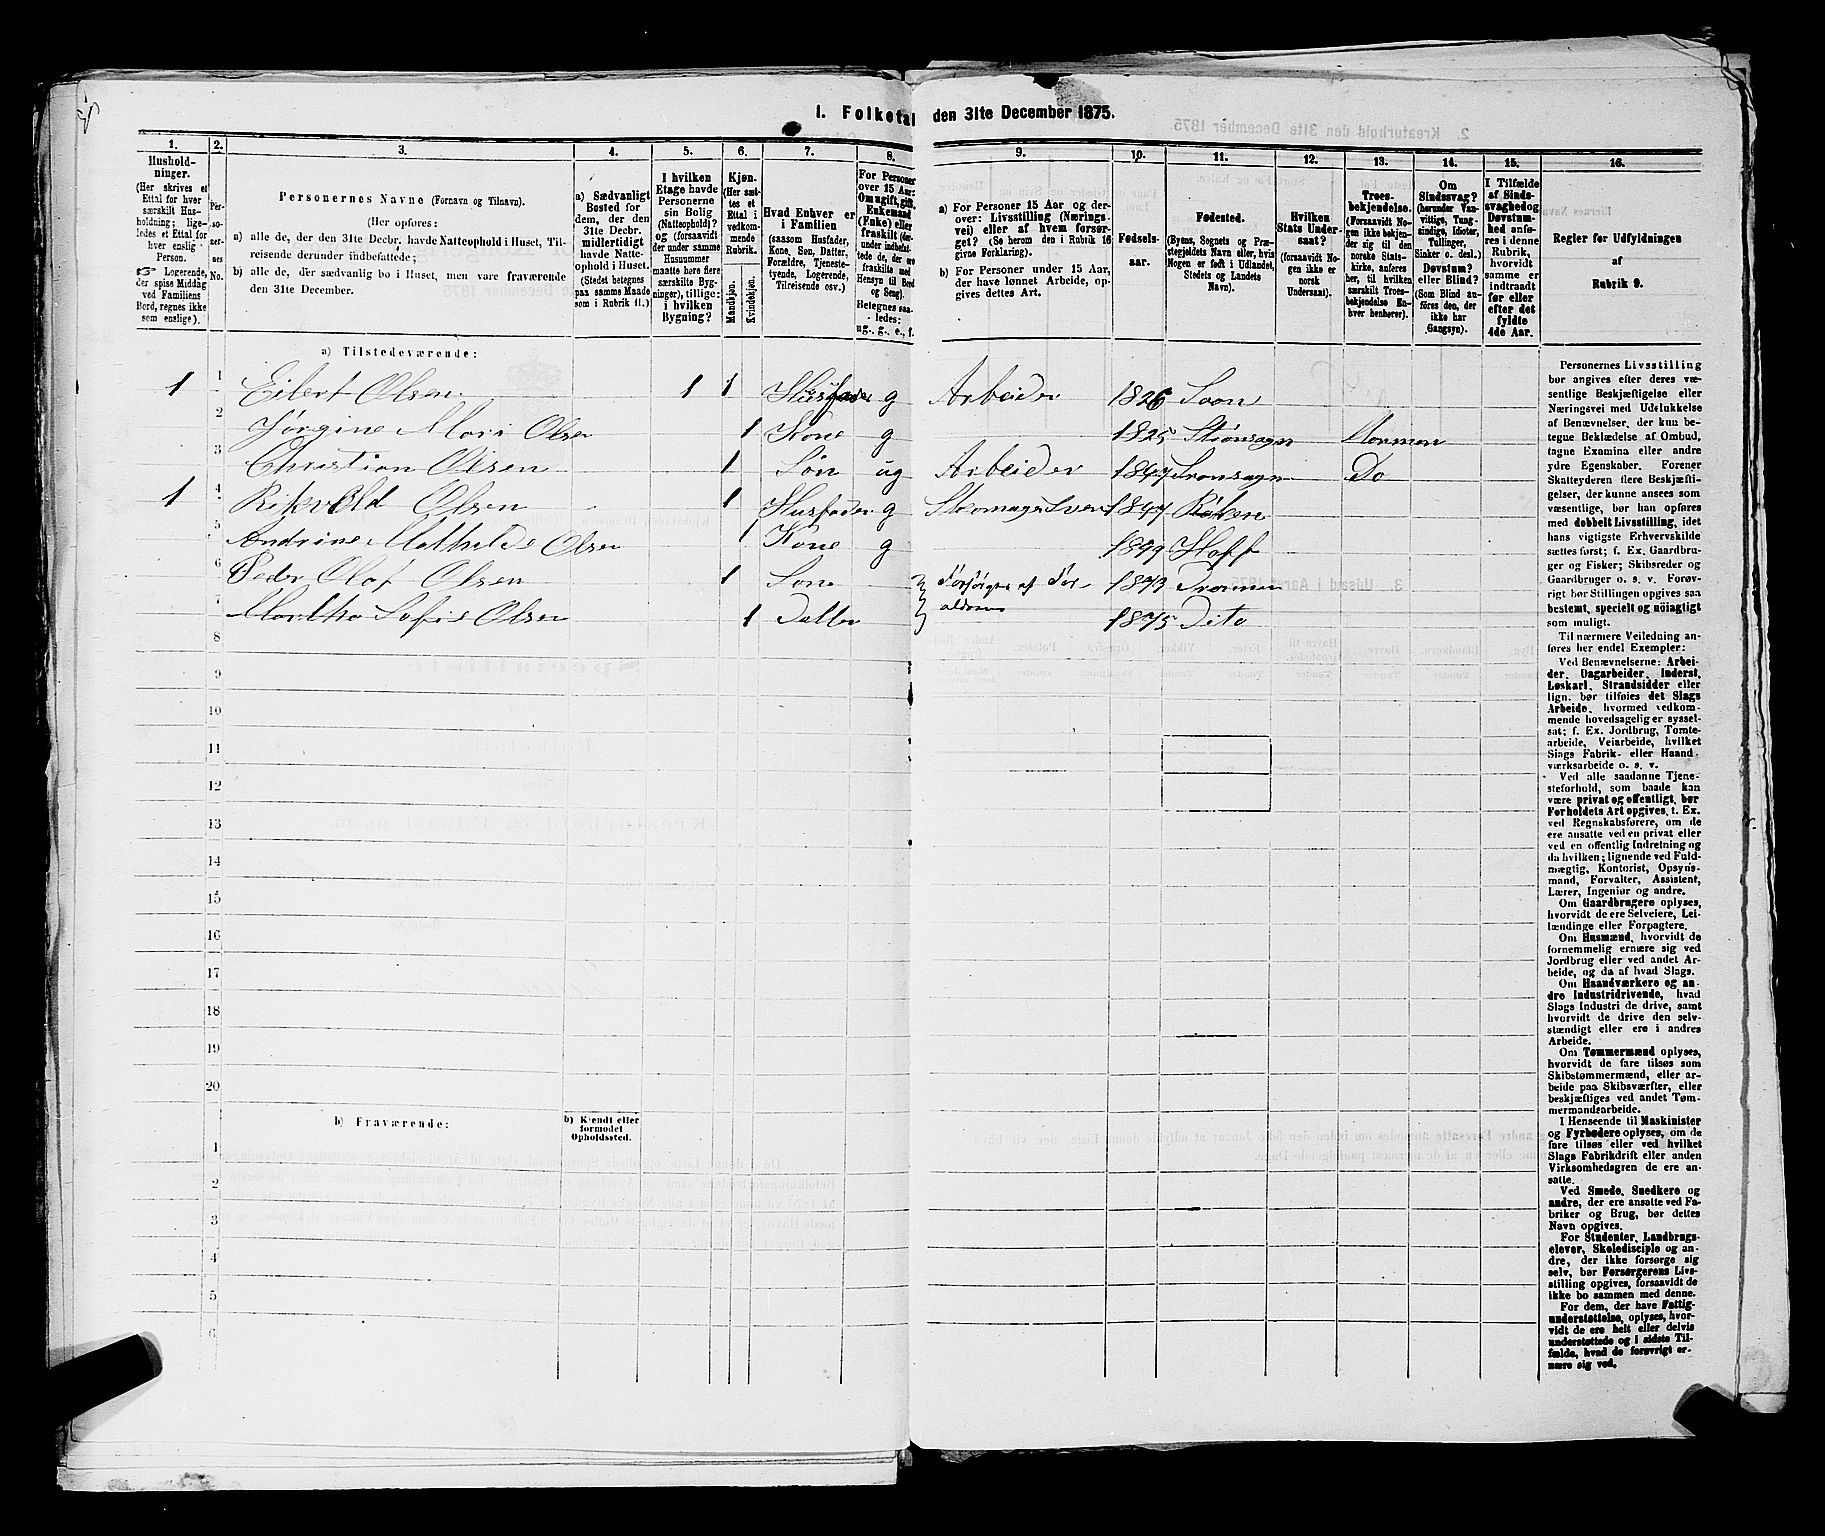 1. Folketal den 31te December 1875.
1. 2. 3. 4. 5. 6. 7. 8. 9. 10. 11. 12. 13. 14. 15. 16.
Hushold-
ninger.
(Her skrives et
Ettal for hver
særskilt Hus-
holdning; lige-
ledes et Ettal for
hver enslig
Person.
Logerende,
der spise Middag
ved Familiens
Bord, regnes ikke
som enslige).
Per-
so-
ner-
nes
No.
Personernes Navne (Fornavn og Tilnavn).
(Her opføres:
a) alle de, der den 31te Decbr. havde Natteophold i Huset, Til-
reisende derunder indbefattede;
b) alle de, der sædvanlig bo i Huset, men vare fraværende
den 31te December.
a) Sædvanligt
Bosted for
dem, der den
31te Decbr.
midlertidigt
havde Natte-
ophold i Huset.
(Stedet betegnes
paa samme Maade
som i Rubrik 11.)
I hvilken
Etage havde
Personerne
sin Bolig
(Natteophold)?
og (forsaavidt
der under samme
Husnummer
maatte høre flere
særskilte Byg-
ninger), tillige:
i hvilken
Bygning?
Kjøn.
(Her sæt-
tes et
Ettal i
vedkom-
mende
Rubrik.
Mandkjøn.
Kvindekjøn.
Hvad Enhver er
i Familien
(saasom Husfader,
Kone, Søn, Datter,
Forældre, Tjeneste-
tyende, Logerende,
Tilreisende osv.)
For Personer
over 15 Aar:
Om ugift, gift,
Enkemand
(Enke) eller
fraskilt (der-
under indbefat-
tede de, der ere
fraskilte med
Hensyn til Bord
og Seng).
Betegnes saa-
ledes:
ug., g., e., f.
a) For Personer 15 Aar og der-
over: Livsstilling (Nærings-
vei) eller af hvem forsør-
get? (Se herom den i Rubrik 16
givne Forklaring).
b) For Personer under 15 Aar,
der have lønnet Arbeide, op-
gives dettes Art.
Fødsels-
aar.
Fødested.
(Byens, Sognets og Præ-
stegjeldets Navn eller, hvis
Nogen er født i Udlandet,
Stedets og Landets
Navn).
Hvilken
Stats Under-
saat?
(forsaavidt No-
gen ikke er
norsk
Undersaat).
Troes-
bekjendelse.
(Forsaavidt No-
gen ikke bekjen-
der sig til den
norske Stats-
kirke, anføres
her, til hvilken
særskilt Troes-
bekjendelse En-
hver henhører).
Om
Sindssvag?
(herunder Van-
vittige, Tung-
sindige, Idioter,
Tullinger,
Sinker o. desl.)
Døvstum?
eller Blind?
(Som Blind an-
føres den, der
ikke har
Gangsyn).
I Tilfælde
af Sinds-
svaghed og
Døvstum-
hed anfø-
res i denne
Rubrik,
hvorvidt
samme er
indtraadt
før eller
efter det
fyldte
4de Aar.
Regler for Udfyldningen
af
Rubrik 9.
a) Tilstedeværende:
1 1 Eilert Olsen 1 1 Husfader g Arbeider 1826 Soon
2 Jørgine Mari Olsen 1 Kone g 1825 Mormon
3 Christian Olsen 1 Søn ug Arbeider Do
1 4 Olsen 1 Husfader g 1847 Røken
5 Andrine Mathilde Olsen 1 Kone g Hoff
6 Peder Olaf Olsen 1 Sone Forsørges af For
ældrene 1873
7 Martha Sofie Olsen 1 Datter 1875 Dito
8
9
10
11
12
13
14
15
16
17
18
19
20
b) Fraværende:
b) Kjendt eller
formodet
Opholdssted.
1
2
3
4
5
6
Personernes Livsstilling
bør angives efter deres væ-
sentlige Beskjæftigelse eller
Næringsvei med Udelukkelse
af Benævnelser, der kun be-
tegne Beklædelse af Ombud,
tagne Examina eller andre
ydre Egenskaber. Forener
Skatteyderen flere Beskjæfti-
gelser, der kunne ansees som
væsentlige, bør han opføres
med dobbelt Livsstilling, idet
hans vigtigste Erhvervskilde
sættes først; f. Ex. Gaardbru-
ger og Fisker; Skibsreder og
Gaardbruger o. s. v. Forøv-
rigt bør Stillingen opgives saa
bestemt, specielt og nøiagtigt
som muligt.
Til nærmere Veiledning an-
føres her endel Exempler:
Ved Benævnelserne: Arbei-
der, Dagarbeider, Inderst,
Løskarl, Strandsidder eller
lign. bør tilføies det Slags
Arbeide, hvormed vedkom-
mende hovedsagelig er syssel-
sat; f. Ex. Jordbrug, Tomte-
arbeide, Veiarbeide, hvilket
Slags Fabrik- eller Haand-
værksarbeide o. s. v.
Ved alle saadanne Tjene-
steforhold, som baade kan
være privat og offentligt, bør
Forholdets Art opgives, t. Ex.
ved Regnskabsførere, om de
ere ansatte ved en privat eller
ved en offentlig Indretning og
da hvilken; lignende ved Fuld-
mægtig, Kontorist, Opsyns-
mand, Forvalter, Assistent,
Lærer, Ingeniør og andre.
Om Gaardbrugere oplyses,
hvorvidt de ere Selveiere, Lei-
lændinge eller Forpagtere.
Om Husmænd, hvorvidt de
fornemmelig ernære sig ved
Jordbrug eller ved andet Ar-
beide, og da af hvad Slags.
Om Haandværkere og an-
dre Industridrivende, hvad
Slags Industri de drive, samt
hvorvidt de drive den selv-
stændigt eller ere i andres
Arbeide.
Om Tømmermænd oplyses,
hvorvidt de fare tilsøs som
Skibstømmermænd, eller ar-
beide paa Skibsværfter, eller
beskjæftiges ved andet Tøm-
mermandsarbeide.
I Henseende til Maskinister
og Fyrbødere oplyses, om de
fare tilsøs eller ved hvilket
Slags Fabrikdrift eller anden
Virksomhedsgren de ere an-
satte.
Ved Smede, Snedkere og
andre, der ere ansatte ved Fa-
briker og Brug, bør dettes
Navn opgives.
For Studenter, Landbrugs-
elever, Skoledisciple og an-
dre, der ikke forsørge sig
selv, bør Forsørgerens Livs-
stilling opgives, forsaavidt de
ikke bo sammen med denne.
For dem, der have Fattig-
understøttelse, oplyses, hvor-
vidt de ere helt eller delvis
understøttede og i sidste Til-
fælde, hvad de forøvrigt er-
nære sig ved.